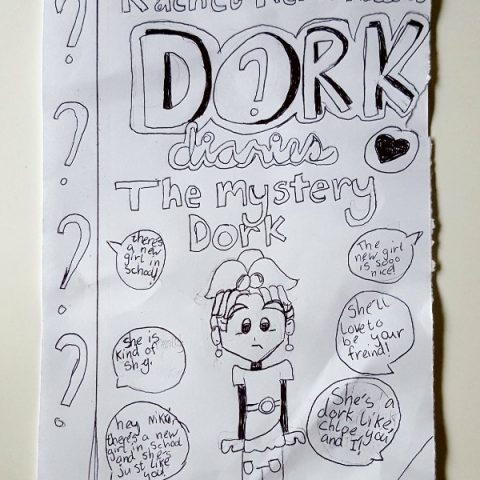 Rachel
DORK
diaries
The mystery
Dork
there's
a new
girl in
school
The
new girl
is sooo
nice!
she is
kind of
shy.
She'll
love to
be your
freind!
hey Nikki,
there's a new
girl in school
and she's
just like
you!
She's a
dork like,
chloe, you
and I!
?
?
?
?